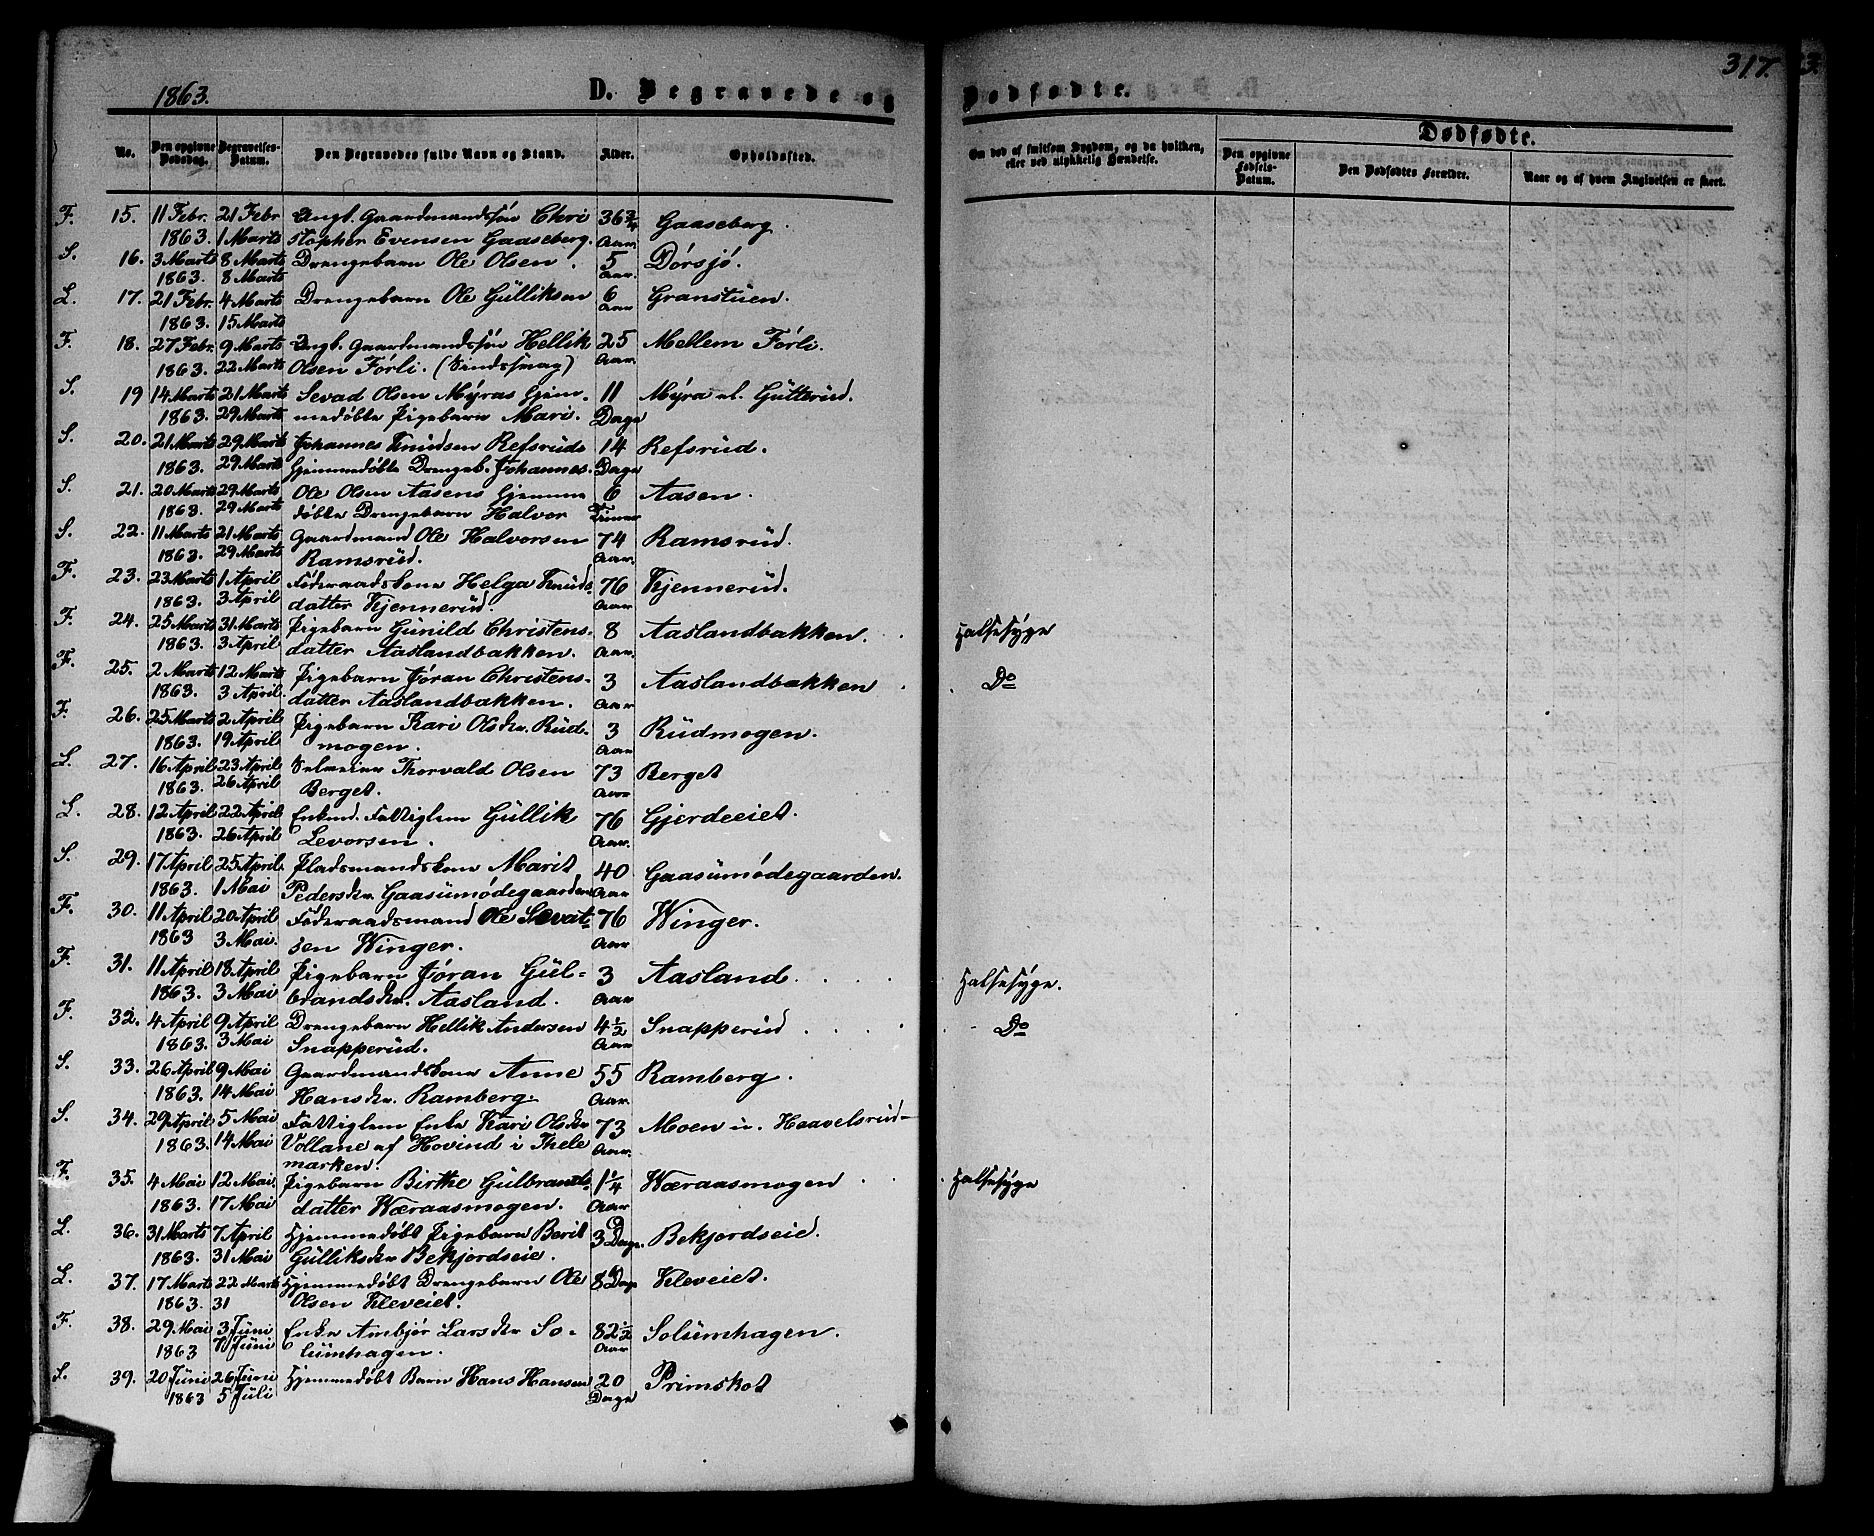 1863.
D. Begravede og Dødfødte.
317.
3.
No.
Den opgivne Dødsdag.
Begravelses-Datum.
Den Begravedes fulde Navn og Stand.
Alder.
Opholdssted.
Om død af smitsom Sygdom, og da hvilken,
eller ved ulykkelig Hændelse.
Dødfødte.
Den opgivne Fødsels-Datum.
Den Dødfødtes Forældre.
Naar og af hvem Angivelsen er skeet.
F. 15. 11 Febr. 21 Febr Ungk. Gaardmandssøn Chri 36 3/4 Gaaseberg.
1863. 1 Marts stopher Evensen Gaaseberg. Aar.
S. 16. 3 Marts 8 Marts Drengebarn Ole Olsen. 5 Dørsjø.
1863. 8 Marts Aar.
L. 17. 21 Febr. 4 Marts Drengebarn Ole Gülliksen 6 Granstuen.
1863. 15 Marts Aar
F. 18. 27 Febr. 9 Marts Ungk. Gaardmandssøn Hellik 25 Mellem Förli.
1863. 22 Marts Olsen Förli. (Sindssvag) Aar.
S. 19 14 Marts 21 Marts Sevad Olsen Myras hjem- 11 Myra el. Gütterüd.
1863. 29 Marts medøbte Pigebarn Mari. Dage
S. 20. 21 Marts 29 Marts Johannes Knudsen Refsruds 14 Refsrüd.
1863. 29 Marts hjemmedøbte Drengeb. Johannes. Dage
S. 21. 20 Marts 29 Marts Ole Olsen Aasens hjemme 6 Aasen.
1863. 29 Marts døbte Drengebarn Halvor Timer
S. 22. 11 Marts 21 Marts Gaardmand Ole Halvorsen 74 Ramsrüd.
1863. 29 Marts Ramsrüd. Aar.
F. 23. 23 Marts 1 April Föderaadskone Helga Knüds- 76 Kjennerüd.
1863. 3 April datter Kjennerüd. Aar
F. 24. 25 Marts 31 Marts Pigebarn Gunild Christens- 8 Aaslandbakken. Halsesyge
1863. 3 April datter Aaslandbakken. Aar.
F. 25. 2 Marts 12 Marts Pigebarn Jøran Christens- 3 Aaslandbakken Do
1863. 3 April. datter Aaslandbakken. Aar
F. 26. 25 Marts 2 April Pigebarn Kari Olsdr. Rüd- 3 Rüdmogen.
1863. 19 April mogen. Aar
L. 27. 16 April 23 April Thorvald Olsen 73 Berget
1863. 26 April Berget. Aar
L. 28. 12 April 22 April Enkmd. Fattiglem Güllik 76 Gjerdeeiet.
1863. 26 April Levorsen. Aar.
S. 29. 17 April 25 April. Pladsmandskone Marit 40 Gaasumødegaarden.
1863. 1 Mai Pedersdr. Gaasümødegaarden Aar
F. 30. 11 April 20 April Föderaadsmand Ole Sevat- 76 Winger.
1863 3 Mai. sen Winger. Aar
F. 31. 11 April 18 April Pigebarn Jøran Gül- 3 Aasland. Halsesyge.
1863. 3 Mai brandsdr. Aasland. Aar
F. 32. 4 April 9 April Drengebarn Hellik Andersen 4 1/2 Snapperüd Do
1863. 3 Mai Snapperüd. Aar
S. 33. 26 April 9 Mai Gaardmandskone Anne 55 Ramberg.
1863. 14 Mai Hansdr. Ramberg. Aar.
S. 34. 29 April 5 Mai Fattiglem Enke Kari Olsdr 73 Moen u. Haavelsrüd
1863. 14 Mai Vollane af Hovind i Thele Aar.
marken.
F. 35. 4 Mai 12 Mai. Pigebarn Birthe Gülbrands- 1 1/4 Kæraasmogen Halsesyge
1863. 17 Mai datter Kæraasmogen. Aar
L. 36. 31 Marts 7 April Hjemmedøbt Pigebarn Berit 3 Dage. Bekjordseie.
1863. 31 Mai Gülliksdr Bekjordseie.
L. 37. 17 Marts 22 Marts Hjemmedøbt Drengebarn Ole 8 Dage Kleveiet.
1863. 31 Olsen Kleveiet.
F. 38. 29 Mai 3 Juni Enke Ambjør Larsdr So- 82 1/2 Solümhagen.
1863 7 Juni lümhagen. Aar
S. 39. 20 Juni 26 Juni Hjemmedøbt Barn Hans Hansen 20 Primskot
1863 5 Juli Dage